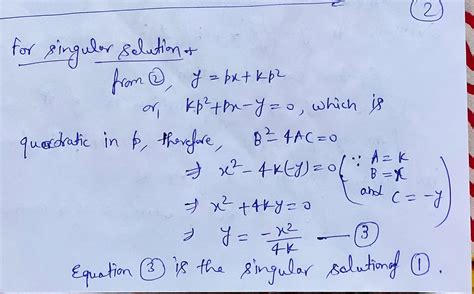 2
For singular solution
from ②, y = px + kp²
or, kp² + px - y = 0, which is
quadratic in p, therefore, B² - 4AC = 0
⇒ x² - 4k(-y) = 0 (∵ A = k
B = x
and C = -y)
⇒ x² + 4ky = 0
⇒ y = -x²/4k — ③
Equation ③ is the singular solution of ①.